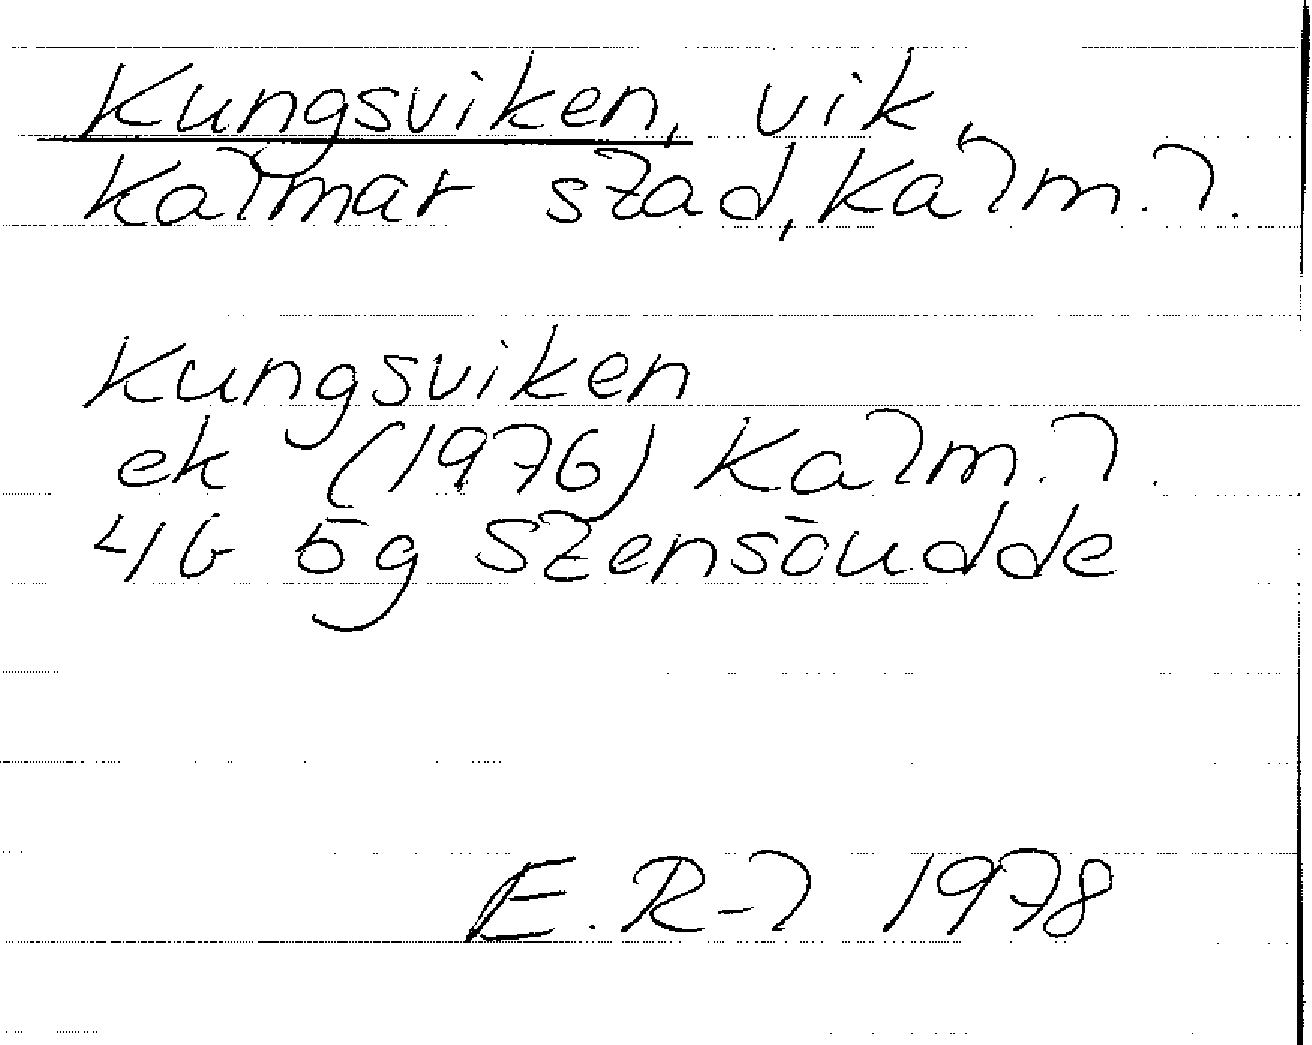 Kungsviken, vik
Kalmar stad, Kalm. l.
Kungsviken
ek (1976) Kalm. l.
4G 5g Stensöudde
E. R-l 1978